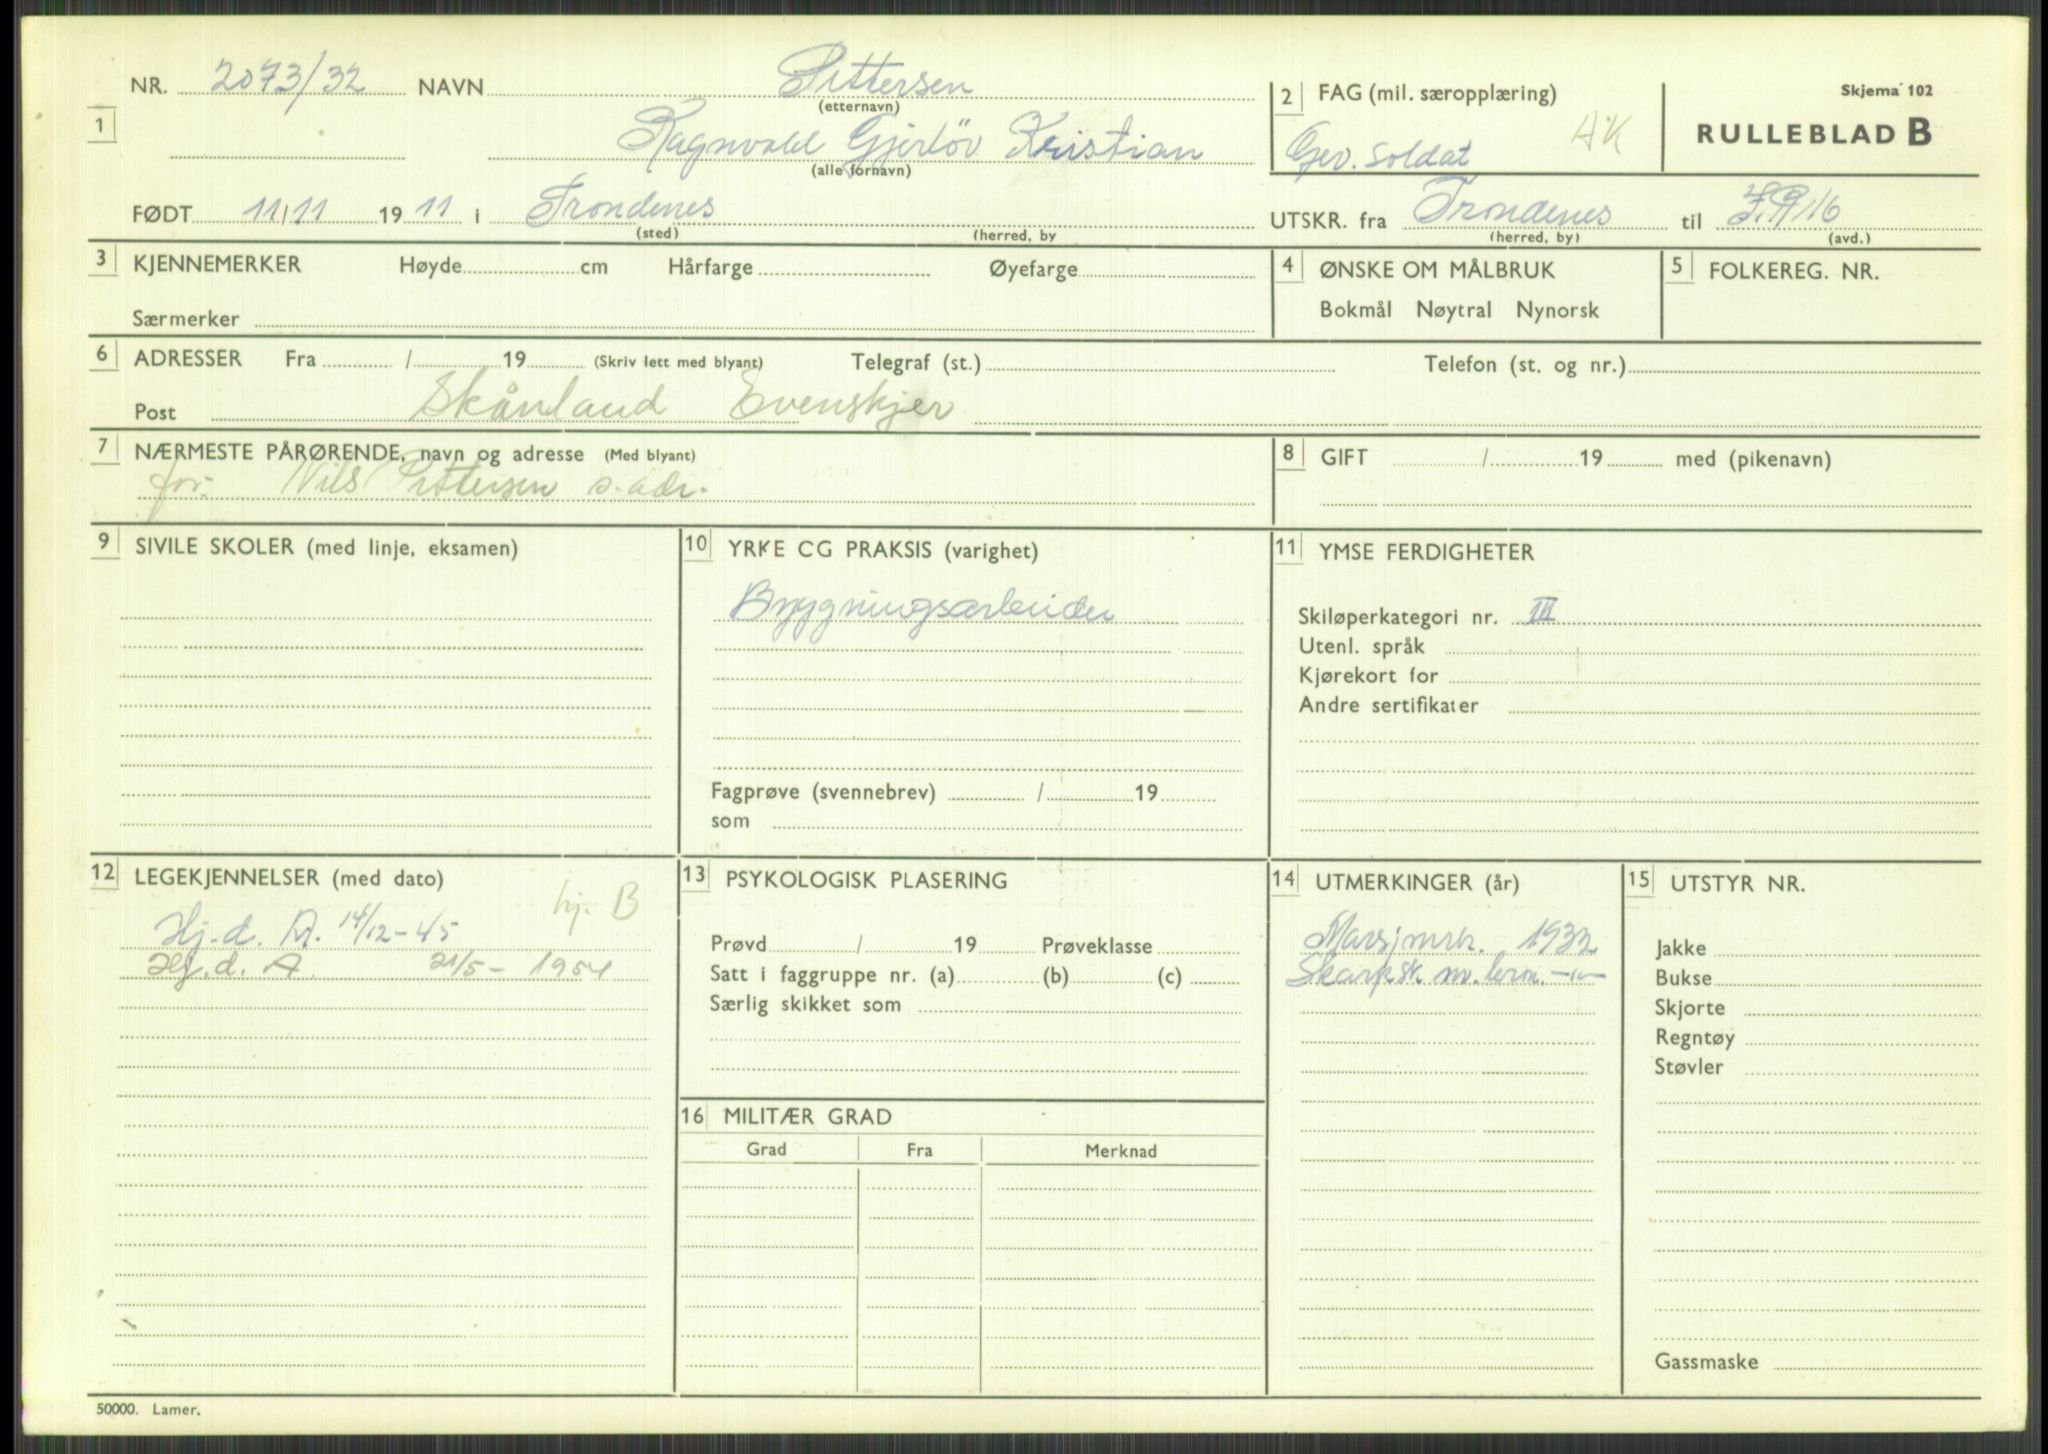 Skjema 102
RULLEBLAD B
1 NR. 2073/32 NAVN Pettersen
(etternavn)
Ragnvald Gjerløv Kristian
(alle fornavn)
FØDT 11/11 1911 i Trondenes
(sted) (herred, by
2 FAG (mil. særopplæring)
Gev. soldat AK
UTSKR. fra Trondenes til I.R.16
(herred, by) (avd.)
3 KJENNEMERKER Høyde cm Hårfarge Øyefarge
Særmerker
4 ØNSKE OM MÅLBRUK
Bokmål Nøytral Nynorsk
5 FOLKEREG. NR.
6 ADRESSER Fra / 19 (Skriv lett med blyant) Telegraf (st.) Telefon (st. og nr.)
Post Skånland Evenskjer
7 NÆRMESTE PÅRØRENDE, navn og adresse (Med blyant)
far. Nils Pettersen s. adr.
8 GIFT / 19 med (pikenavn)
9 SIVILE SKOLER (med linje, eksamen)
10 YRKE CG PRAKSIS (varighet)
Bygningsarbeider
Fagprøve (svennebrev) / 19
som
11 YMSE FERDIGHETER
Skiløperkategori nr. III
Utenl. språk
Kjørekort for
Andre sertifikater
12 LEGEKJENNELSER (med dato)
hj. B
Hj. d. A. 14/12-45
Hj. d. A 21/5-1954
13 PSYKOLOGISK PLASERING
Prøvd / 19 Prøveklasse
Satt i faggruppe nr. (a) (b) (c)
Særlig skikket som
14 UTMERKINGER (år)
Marsjmrk. 1932
Skarpsk. m. bron. -"-
15 UTSTYR NR.
Jakke
Bukse
Skjorte
Regntøy
Støvler
Gassmaske
16 MILITÆR GRAD
Grad Fra Merknad
50000. Lamer.